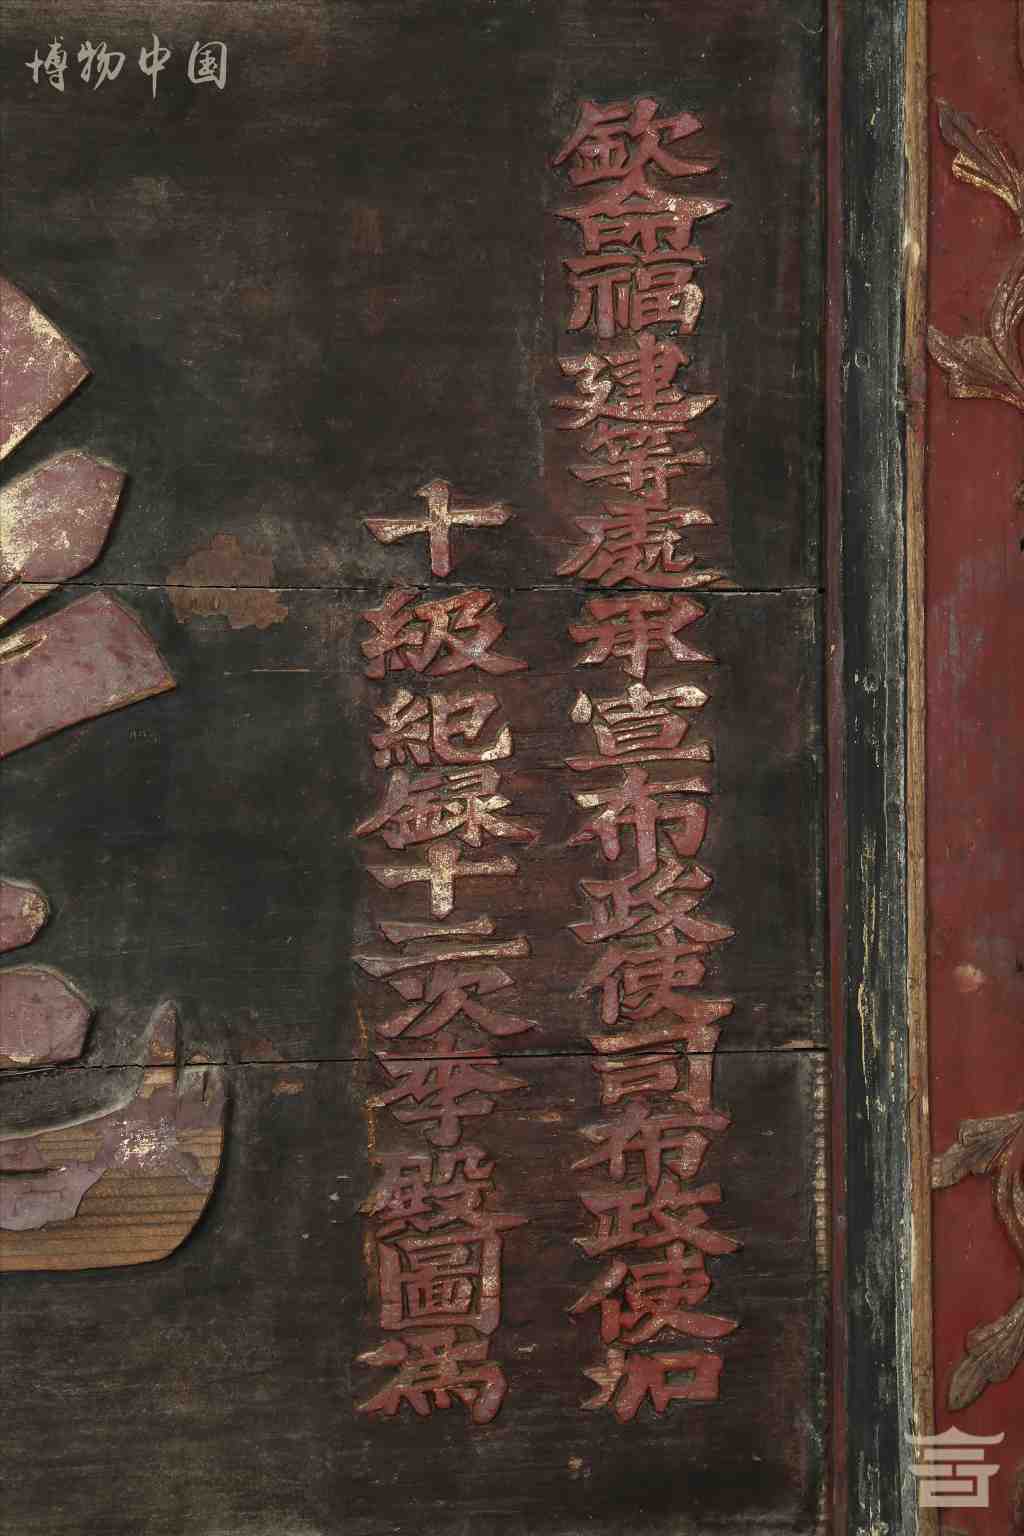 博物中国
欽命福建等處承宣布政使司布政使加
十級紀録十二次李殿圖爲